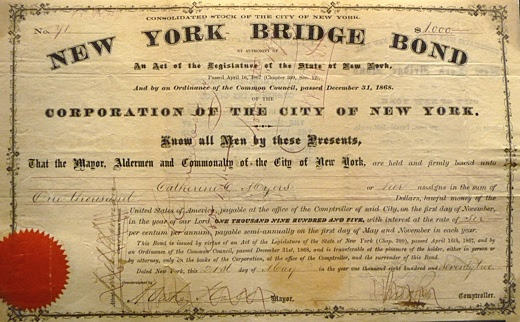 CONSOLIDATED STOCK OF THE CITY OF NEW YORK.
No. 71 $1,000
NEW YORK BRIDGE BOND
BY AUTHORITY OF
An Act of the Legislature of the State of New York,
Passed April 16, 1867 (Chapter 399, Sec. 12),
And by an Ordinance of the Common Council, passed December 31, 1868.
OF THE
CORPORATION OF THE CITY OF NEW YORK.
Know all Men by these Presents,
That the Mayor, Aldermen and Commonalty of the City of New York, are held and firmly bound unto
Catharine C. Myers or her assigns in the sum of
One thousand Dollars, lawful money of the
United States of America, payable at the office of the Comptroller of said City, on the first day of November,
in the year of our Lord ONE THOUSAND NINE HUNDRED AND FIVE, with interest at the rate of Six
per centum per annum, payable semi-annually on the first day of May and November in each year.
This Bond is issued by virtue of an Act of the Legislature of the State of New York (Chap. 399), passed April 16th, 1867, and by
an Ordinance of the Common Council, passed December 31st, 1868, and is transferable at the pleasure of the holder, either in person
or by attorney, only on the books of the Corporation, at the office of the Comptroller, and the surrender of this Bond.
Dated New York, this day of May in the year one thousand eight hundred and seventy two
Mayor. Comptroller.